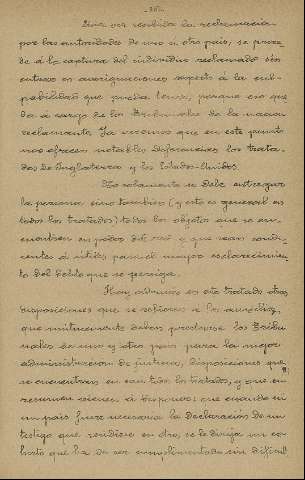 Una vez recibida la reclamación
por las autoridades de uno u otro país, se proce-
de á la captura del individuo reclamado sin
entrar en averiguaciones respecto á la cul-
pabilidad que pueda tener, porque eso que-
da á cargo de los Tribunales de la nacion
reclamante. Ya vemos que en este punto
nos ofrecen notables diferencias los trata-
dos de Inglaterra y los Estados-Unidos.
No solamente se debe entregar
la persona, sino tambien (y esto es general en
todos los tratados) todos los objetos que se en-
cuentren en poder del reo y que sean condu-
centes ó útiles para el mayor esclarecimien-
to del delito que se persiga.
Hay además en este tratado otras
disposiciones que se refieren á los auxilios
que mútuamente deben prestarse los Tribu-
nales de uno y otro país para la mejor
administracion de justicia, disposiciones que
se encuentran en casi todos los tratados, y que en
resumen vienen á disponer: que cuando en
un país fuese necesaria la declaración de un
testigo que residiere en otro, se le dirija un ex-
horto que ha de ser cumplimentado sin dificul